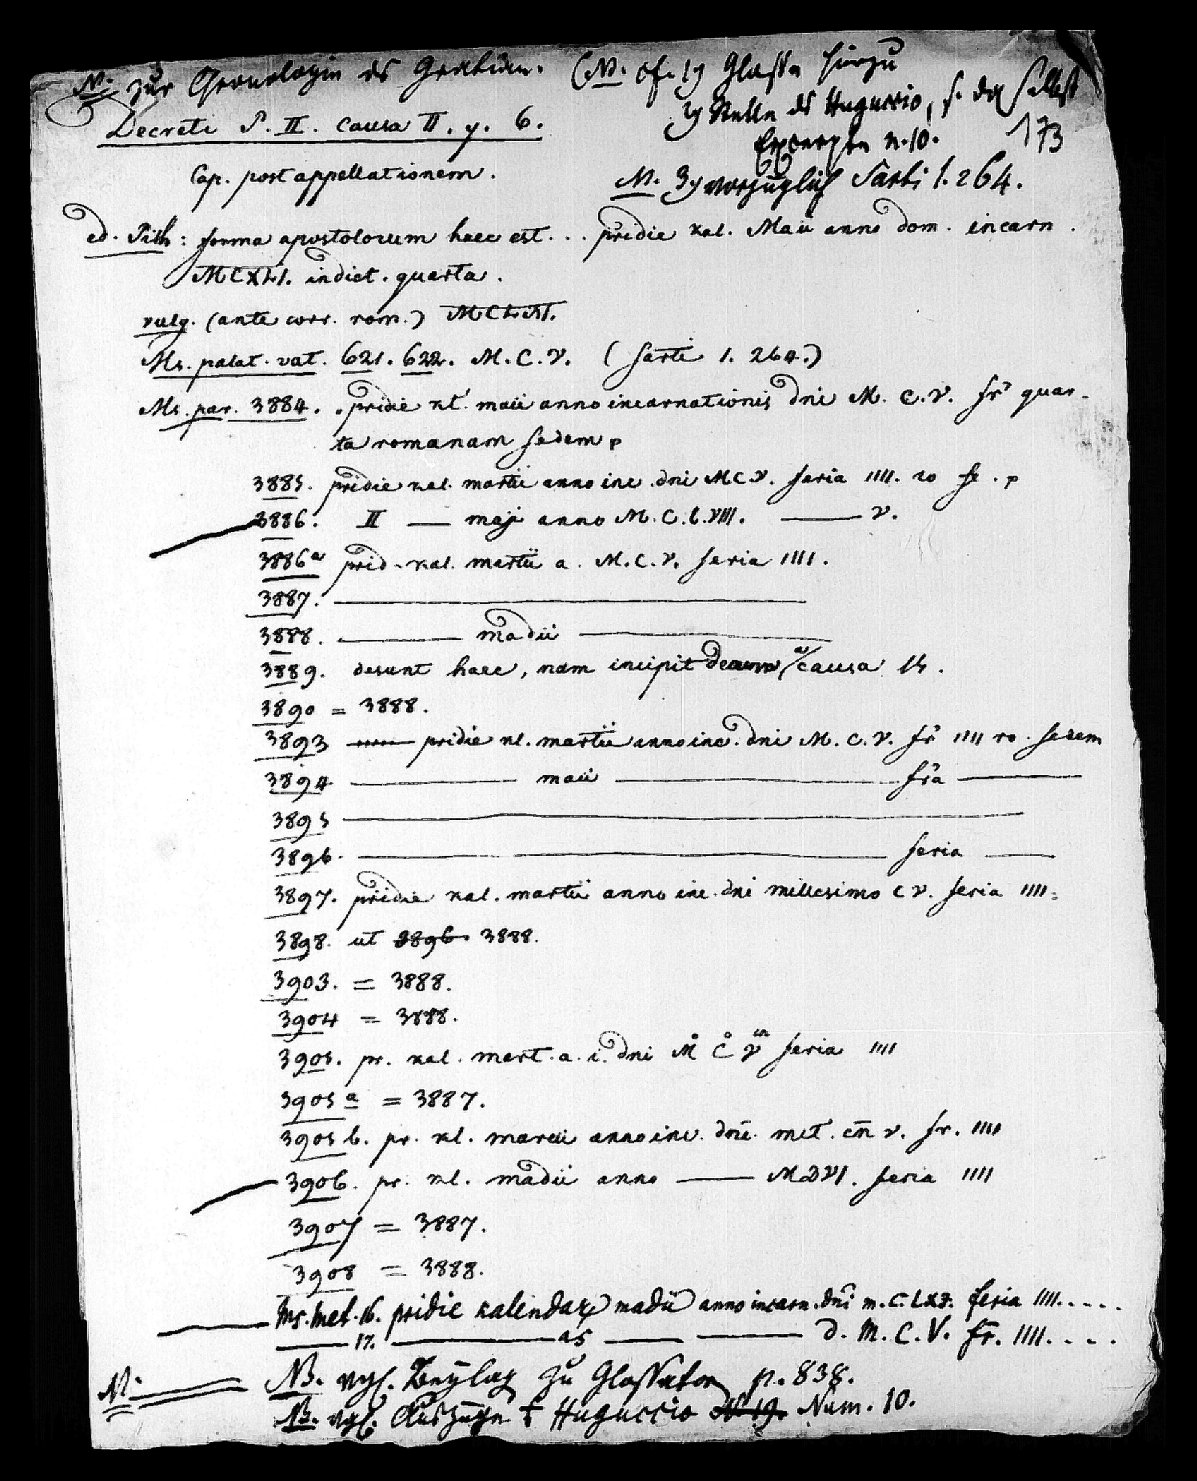 N. zur Chronologie des Gratian. (N. cf. Glosse hierzu
Stelle des Huguccio, s. daselbst
Decreti P. II. causa II. q. 6.
Excerpte n. 10. 173
Cap. post appellationem.
N. vorzüglich Sarti 1. 264.
ed. Pith: forma apostolorum haec est... pridie kal. Maii anno dom. incarn.
MCXLI. indict. quarta.
vulg. (ante corr. rom.) MCLXI.
Ms. palat. vat. 621. 622. M. C. V. (Sarti 1. 264.)
Ms. par. 3884. pridie kl. maii anno incarnationis dni M. C. V. fr quar-
ta romanam sedem
3885. pridie kal. martii anno inc. dni M C V. feria IIII. ro se. p
3886. II — maji anno M. C. L. VIII. — v.
3886a prid. kal. martii a. M. C. V. feria IIII.
3887. —
3888. — madii —
3889. desunt haec, nam incipit a causa 15.
3890 = 3888.
3893 pridie kl. martii anno inc. dni M. C. V. fr IIII ro. sedem
3894 — maii — fra —
3895 —
3896. — feria —
3897. pridie kal. martii anno inc. dni millesimo C V. feria IIII.
3898. ut 3896 3888.
3903. = 3888.
3904 = 3888.
3905. pr. kal. mart. a. i. dni M C V feria IIII
3905 a = 3887.
3905 b. pr. kl. marcii anno inc. dni. mll. cn v. fr. IIII
3906. pr. kl. madii anno — M D VI. feria IIII
3907 = 3887.
3908 = 3888.
Ms. Met. 16. pridie kalendar madii anno incarn. dni m. c. Lxi. feria IIII.....
— 17. — as — d. M. C. V. fr. IIII....
N. NB. vgl. Beylag zu Glossator p. 838.
NB. vgl. Auszüge Huguccio Num. 10.